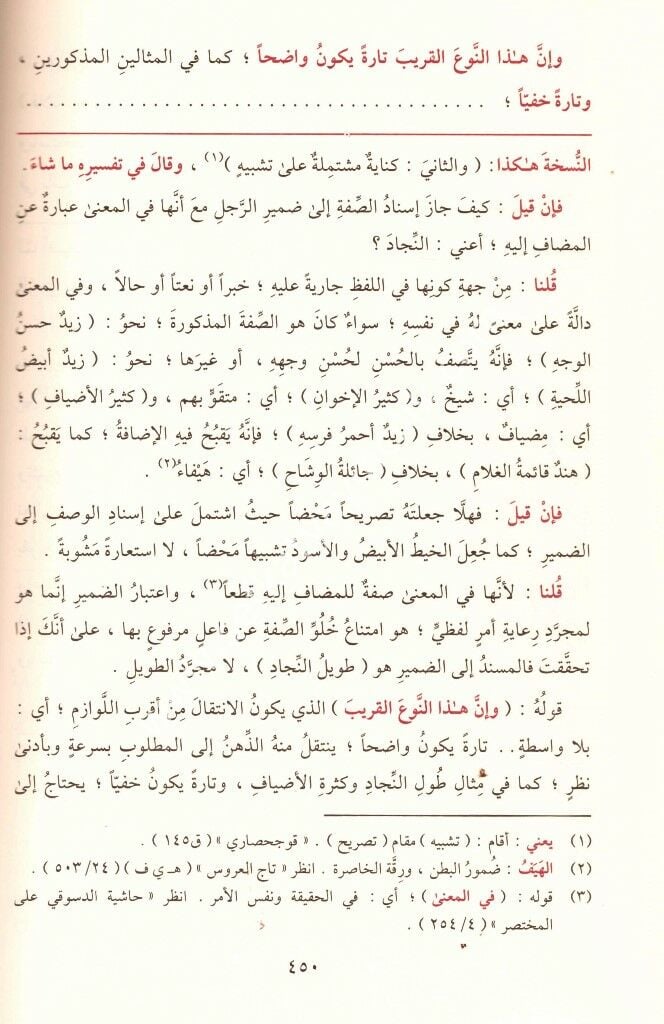 وإنَّ هـٰذا النَّوعَ القريبَ تارةً يكونُ واضحاً ؛ كما في المثالينِ المذكورينِ ،
وتارةً خفيّاً ؛ . . . . . . . . . . . . . . . . . . . . . . . . . . . . . . . . . . . . . . . .
النُّسخةَ هـٰكذا : ( والثانيَ : كنايةٌ مشتمِلةٌ علىٰ تشبيهٍ )(١) ، وقالَ في تفسيرِهِ ما شاءَ .
فإنْ قيلَ : كيفَ جازَ إسنادُ الصِّفةِ إلىٰ ضميرِ الرَّجلِ معَ أنَّها في المعنىٰ عبارةٌ عنِ
المضافِ إليهِ ؛ أعني : النِّجادَ ؟
قُلنا : مِنْ جهةِ كونِها في اللفظِ جاريةً عليهِ ؛ خبراً أو نعتاً أو حالاً ، وفي المعنىٰ
دالَّةً علىٰ معنىً لهُ في نفسِهِ ؛ سواءٌ كانَ هو الصِّفةَ المذكورةَ ؛ نحوُ : ( زيدٌ حسنُ
الوجهِ ) ؛ فإنَّهُ يتَّصفُ بالحُسْنِ لحُسْنِ وجهِهِ ، أو غيرَها ؛ نحوُ : ( زيدٌ أبيضُ
اللِّحيةِ ) ؛ أي : شيخٌ ، و( كثيرُ الإخوانِ ) ؛ أي : متقَوٍّ بهم ، و( كثيرُ الأضيافِ ) ؛
أي : مِضيافٌ ، بخلافِ ( زيدٌ أحمرُ فرسِهِ ) ؛ فإنَّهُ يَقبُحُ فيهِ الإضافةُ ؛ كما يَقبُحُ :
( هندٌ قائمةُ الغلامِ ) ، بخلافِ ( جائلةُ الوِشاحِ ) ؛ أي : هَيْفاءُ(٢) .
فإنْ قيلَ : فهلَّا جعلتَهُ تصريحاً مَحْضاً حيثُ اشتملَ علىٰ إسنادِ الوصفِ إلى
الضميرِ ؛ كما جُعِلَ الخيطُ الأبيضُ والأسودُ تشبيهاً مَحْضاً ، لا استعارةً مَشُوبةً .
قُلنا : لأنَّها في المعنىٰ صفةٌ للمضافِ إليهِ قطعاً(٣) ، واعتبارُ الضميرِ إنَّما هو
لمجرَّدِ رعايةِ أمرٍ لفظيٍّ ؛ هو امتناعُ خُلُوِّ الصِّفةِ عن فاعلٍ مرفوعٍ بها ، علىٰ أنَّكَ إذا
تحقَّقتَ فالمسندُ إلى الضميرِ هو ( طويلُ النِّجادِ ) ، لا مجرَّدُ الطويلِ .
قولُهُ : ( وإنَّ هـٰذا النَّوعَ القريبَ ) الذي يكونُ الانتقالُ مِنْ أقربِ اللَّوازمِ ؛ أي :
بلا واسطةٍ . . تارةً يكونُ واضحاً ؛ ينتقلُ منهُ الذِّهنُ إلى المطلوبِ بسرعةٍ وبأدنىٰ
نظرٍ ؛ كما في مِثالِ طُولِ النِّجادِ وكثرةِ الأضيافِ ، وتارةً يكونُ خفيّاً ؛ يحتاجُ إلىٰ
(١) يعني : أقام : ( تشبيه ) مقام ( تصريح ) . « قوجحصاري » ( ق١٤٥ ) .
(٢) الهَيَفُ : ضُمورُ البطن ، ورِقَّة الخاصرة . انظر « تاج العروس » ( هـ ي ف ) ( ٢٤/ ٥٠٣ ) .
(٣) قوله : ( في المعنىٰ ) ؛ أي : في الحقيقة ونفس الأمر . انظر « حاشية الدسوقي على
المختصر » ( ٤/ ٢٥٤ ) .
٤٥٠